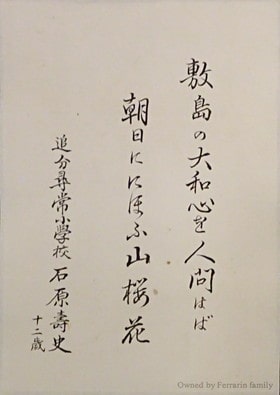 敷島の大和心を人問はば
朝日ににほふ山桜花
追分尋常小學校 石原壽史
十二歳
Owned by Ferrarin family